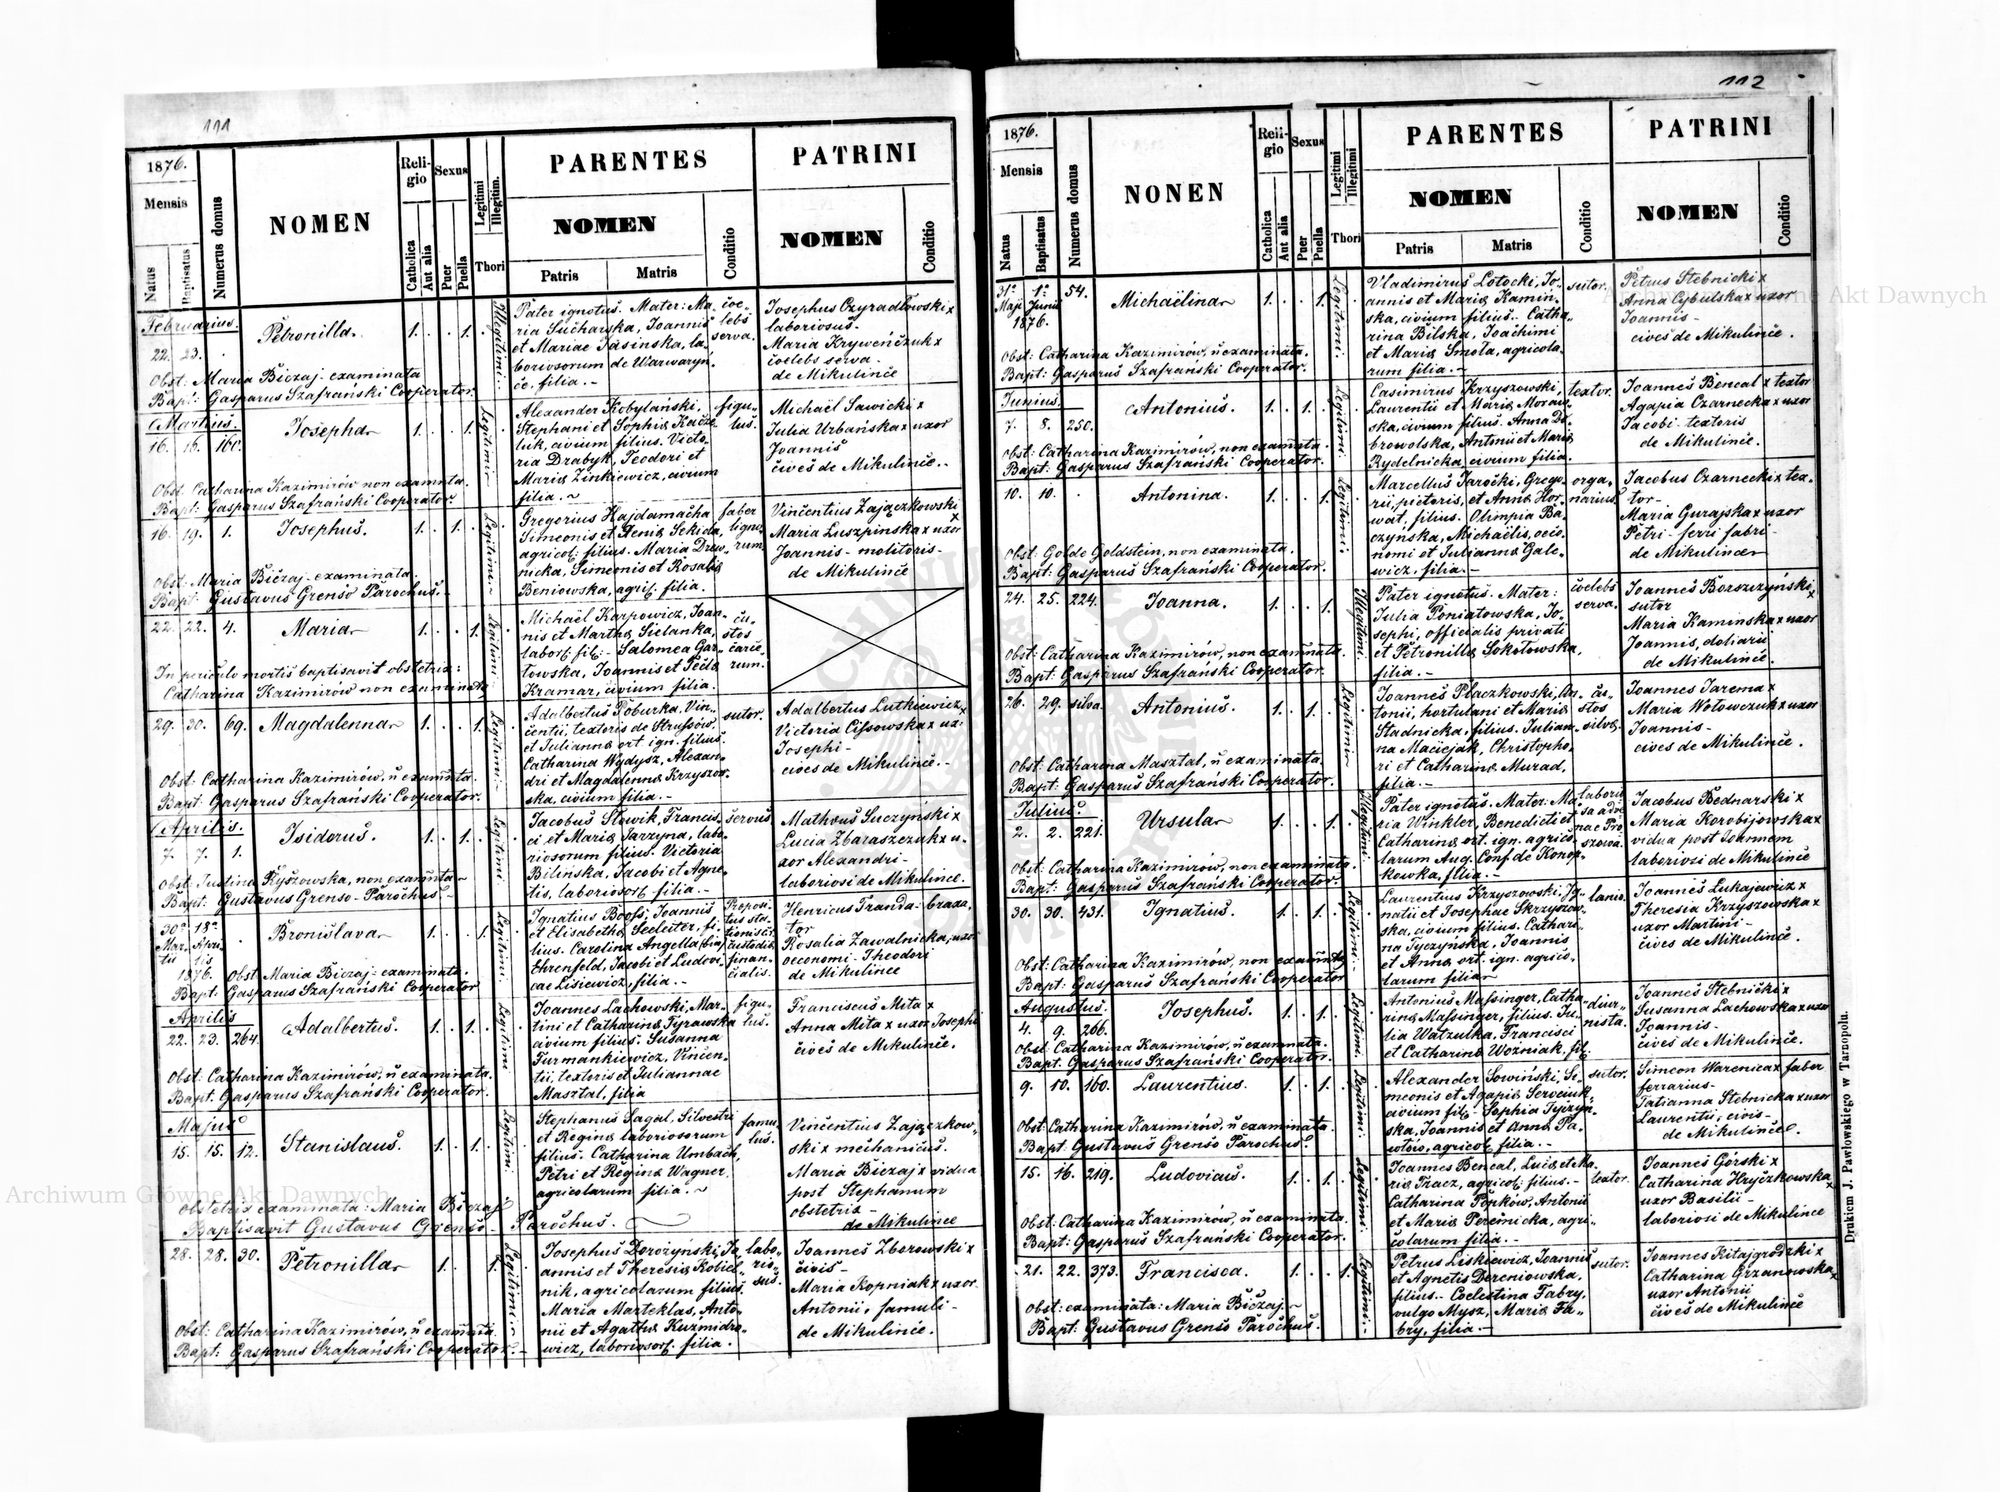 111
1876.
Mensis
Natus
Baptisatus
Numerus domus
NOMEN
Religio
Catholica
Aut alia
Sexus
Puer
Puella
Legitimi
Illegitim.
Thori
PARENTES
NOMEN
Patris
Matris
Conditio
PATRINI
NOMEN
Conditio
Februarius.
22. 23.
Petronilla.
1. . . 1.
Illegitimi
Pater ignotus. Mater: Ma-
ria Sucharska, Joannis
et Mariae Jasinska, la-
boriosorum de Warwaryń-
ce, filia. -
coe-
lebs
serva.
Josephus Czyradłowski x
laboriosus.
Maria Kryweńczuk x
coelebs serva.
de Mikulince
Obst: Maria Biczaj examinata
Bapt: Gasparus Szafrański Cooperator.
Martius.
16. 16. 160.
Josepha
1. . . 1.
Legitimi
Alexander Kobylański,
Stephani et Sophiæ Kacze-
luk, civium filius. Victo-
ria Drabyk, Teodori et
Mariæ Zinkiewicz, civium
filia. ~
figu-
lus.
Michaël Sawicki x
Julia Urbańska x uxor
Joannis
cives de Mikulince.
Obst. Catharina Kazimirów non examnta.
Bapt: Gasparus Szafrański Cooperator.
16. 19. 1.
Josephus.
1. . 1. .
Legitimi
Gregorius Hajdamacha
Simeonis et Xeniæ Sekida,
agricol: filius. Maria Drew-
nicka, Simeonis et Rosaliæ
Beniowska, agric: filia.
faber
ligno-
rum
Vincentius Zajączkowski x
Maria Luszpinska x uxor
Joannis - molitoris -
de Mikulince
Obst: Maria Biczaj examinata.
Bapt: Gustavus Grenso Parochus.
22. 22. 4.
Maria
1. . . 1.
Legitimi
Michaël Karpowicz, Joan-
nis et Marthæ Sielanka,
labor: fil: - Salomea Gar-
towska, Joannis et Peelæ
Kramar, civium filia.
cu-
stos
carce-
rum.
In periculo mortis baptisavit obstetrix:
Catharina Kazimirów non examinata
29. 30. 69.
Magdalenna
1. . . 1.
Legitimi
Adalbertus Poburka, Vin-
centii, textoris de Strussów,
et Juliannæ ort. ign. filius.
Catharina Wydysz, Alexan-
dri et Magdalenæ Krzyszow-
ska, civium filia. -
sutor.
Adalbertus Lutkiewicz x
Victoria Cissowska x ux:
Josephi -
cives de Mikulince. -
Obst: Catharina Kazimirów, n̄ examn̄ta.
Bapt: Gasparus Szafrański Cooperator.
Aprilis.
7. 7. 1.
Isidorus.
1. . 1. .
Legitimi
Jacobus Słowik, Francis-
ci et Mariæ Tarzyna, labo-
riosorum filius. Victoria
Bilińska, Jacobi et Agne-
tis, laborios: filia. -
servus
Mathæus Suczyński x
Lucia Zbaraszczuk x u-
xor Alexandri -
laboriosi de Mikulince.
Obst. Justina Kyszowska, non examn̄ta
Bapt: Gustavus Grenso - Parochus. -
30ª 18ª
Mar- Apri-
tii lis
1876.
Bronislava
1. . . 1.
Legitimi
Ignatius Booss, Joannis
et Elisabethæ Seeleiter, fi-
lius. Carolina Angella (bin:)
Ehrenfeld, Jacobi et Ludovi-
cae Lisiewicz, filia. -
Henricus Tranda - braxa-
tor
Rosalia Zawalnicka, uxor
oeconomi - Theodori
de Mikulince
Obst. Maria Biczaj - examinata.
Bapt: Gasparus Szafrański Cooperator
Aprilis
22. 23. 264.
Adalbertus.
1. . 1. .
Legitimi
Joannes Lachowski, Mar-
tini et Catharinæ Tyrawska
civium filius. Susanna
Furmankiewicz, Vincen-
tii, textoris et Juliannae
Masztal, filia
figu-
lus.
Franciscus Mita x
Anna Mita x uxor Josephi
cives de Mikulince.
Obst: Catharina Kazimirów, n̄ examinata.
Bapt: Gasparus Szafrański Cooperator.
Majus
15. 15. 12.
Stanislaus.
1. . 1. .
Legitimi
Stephanus Sagal, Silvestri
et Reginæ laboriosorum
filius. Catharina Umbach,
Petri et Reginæ Wagner,
agricolarum filia. ~
famu-
lus.
Vincentius Zajączkow-
ski x mechanicus.
Maria Biczaj x vidua
post Stephanum
obstetrix -
de Mikulince
Obstetrix examinata: Maria Biczaj
Baptisavit Gustavus Grenso - Parochus.
28. 28. 30.
Petronilla
1. . . 1.
Legitimi
Josephus Dorożyński, Jo-
annis et Theresiæ Kobiel-
nik, agricolarum filius.
Maria Marteklas, Anto-
nii et Agathæ Kuzmidro-
wicz, laborios: filia.
labo-
rio-
sus.
Joannes Zborowski x
civis -
Maria Kopniak x uxor
Antonii, famuli -
de Mikulince.
Obst: Catharina Kazimirów, n̄ examn̄ta.
Bapt: Gasparus Szafrański Cooperator. -
112
1876.
Mensis
Natus
Baptisatus
Numerus domus
NONEN
Religio
Catholica
Aut alia
Sexus
Puer
Puella
Legitimi
Illegitimi
Thori
PARENTES
NOMEN
Patris
Matris
Conditio
PATRINI
NOMEN
Conditio
31ª 1ª 54.
Maji Junii
1876.
Michaëlina
1. . . 1.
Legitimi
Vladimirus Łotocki, Jo-
annis et Mariæ Kamin-
ska, civium filius. Catha-
rina Bilska, Joachimi
et Mariæ Smoła, agricola-
rum filia. -
sutor.
Petrus Stebnicki x
Anna Cybulska x uxor
Joannis -
cives de Mikulince.
Obst: Catharina Kazimirów, n̄ examinata.
Bapt: Gasparus Szafrański Cooperator.
Junius.
7. 8. 250.
Antonius.
1. . 1. .
Legitimi
Casimirus Krzyszowski,
Laurentii et Mariæ Moraw-
ska, civium filius. Anna Do-
browolska, Antonii et Mariæ
Rydelnicka, civium filia.
textor.
Joannes Bencal x textor
Agapia Czarnecka x uxor
Jacobi - textoris
de Mikulince.
Obst: Catharina Kazimirów, non examn̄ta
Bapt: Gasparus Szafrański Cooperator.
10. 10. .
Antonina.
1. . . 1.
Legitimi
Marcellus Jarocki, Grego-
rii, pictoris, et Annæ Hor-
wat, filius. Olimpia Ba-
czynska, Michaëlis, oeco-
nomi et Juliannæ Gale-
wicz, filia. -
orga-
narius
Jacobus Czarnecki x tex-
tor -
Maria Gurajska x uxor
Petri - ferri fabri -
de Mikulince
Obst: Golde Goldstein, non examinata.
Bapt: Gasparus Szafrański Cooperator.
24. 25. 224.
Joanna.
1. . . 1.
Illegitimi
Pater ignotus. Mater:
Julia Poniatowska, Jo-
sephi, officialis privati
et Petronillæ Sokołowska,
filia. -
coelebs
serva.
Joannes Borszczyński x
sutor
Maria Kaminska x uxor
Joannis, doliarii
de Mikulince.
Obst: Catharina Kazimirów, non examn̄ta.
Bapt: Gasparus Szafrański Cooperator.
26. 29. silva.
Antonius.
1. . 1. .
Legitimi
Joannes Płaczkowski, An-
tonii, hortulani et Mariæ
Stadnicka, filius. Julian-
na Maciejak, Christopho-
ri et Catharinæ Murad,
filia. -
cu-
stos
silvæ.
Joannes Jarema x
Maria Wołowczuk x uxor
Joannis -
cives de Mikulince.
Obst: Catharina Masztal, n̄ examinata.
Bapt: Gasparus Szafrański Cooperator.
Julius.
2. 2. 221.
Ursula
1. . . 1.
Illegitimi
Pater ignotus. Mater: Ma-
ria Winkler, Benedicti et
Catharinæ ort. ign. agrico-
larum Aug. Conf. de Konop-
kowka, filia. -
Jacobus Bednarski x
Maria Korobijowska x
vidua post Joannem
laboriosi de Mikulince
Obst: Catharina Kazimirów, non examn̄ta.
Bapt: Gasparus Szafrański Cooperator.
30. 30. 431.
Ignatius.
1. . 1. .
Legitimi
Laurentius Krzyszowski, Ig-
natii et Josephae Skrzyszow-
ska, civium filius. Cathari-
na Tyczyńska, Joannis
et Annæ ort. ign. agrico-
larum filia
lanio.
Joannes Łukajewicz x
Theresia Krzyszowska x
uxor Martini -
cives de Mikulince.
Obst: Catharina Kazimirów, non examn̄ta
Bapt: Gasparus Szafrański Cooperator
Augustus.
4. 9. 266.
Josephus.
1. . 1. .
Legitimi
Antonius Massinger, Catha-
rinæ Massinger, filius. Ju-
lia Watzulka, Francisci
et Catharinæ Wozniak, fil:
diur-
nista.
Joannes Stebnicki x
Susanna Lachowska x uxor
Joannis -
cives de Mikulince.
Obst. Catharina Kazimirów, n̄ examinata.
Bapt: Gasparus Szafrański Cooperator.
9. 10. 160.
Laurentius.
1. . 1. .
Legitimi
Alexander Sowiński, Si-
meonis et Agapiæ Serwiuk,
civium fil: - Sophia Tyczyn-
ska, Joannis et Annæ Pa-
włów, agricol: filia. -
sutor.
Simeon Warenica x faber
ferrarius -
Tatianna Stebnicka x uxor
Laurentii, civis -
de Mikulince.
Obst: Catharina Kazimirów, n̄ examinata
Bapt: Gustavus Grenso Parochus.
15. 16. 219.
Ludovicus.
1. . 1. .
Legitimi
Joannes Bencal, Lucæ et Ma-
riæ Tracz, agricol: filius. -
Catharina Popków, Antonii
et Mariæ Peremicka, agri-
colarum filia. -
textor.
Joannes Górski x
Catharina Hryczkowska x
uxor Basilii -
laboriosi de Mikulince
Obst: Catharina Kazimirów, n̄ examinata.
Bapt: Gasparus Szafrański Cooperator.
21. 22. 373.
Francisca.
1. . . 1.
Legitimi
Petrus Liskiewicz, Joannis
et Agnetis Dereniowska,
filius. - Coelestina Fabry,
vulgo Mysz, Mariæ Fa-
bry, filia. -
sutor.
Joannes Kitajgródzki x
Catharina Grzanowska x
uxor Antonii
cives de Mikulince
Obst: examinata: Maria Biczaj. ~
Bapt: Gustavus Grenso Parochus.
Drukiem J. Pawłowskiego w Tarnopolu.
Archiwum Główne Akt Dawnych
Archiwum Główne Akt Dawnych